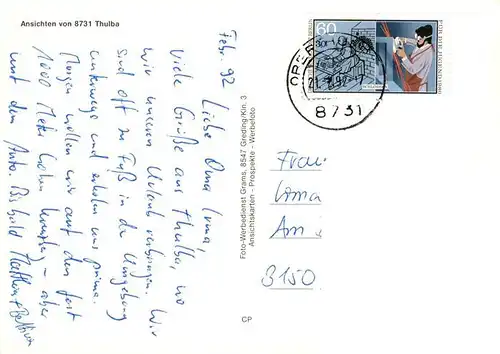 Ansichten von 8731 Thulba
Febr. 92
Liebe Oma Irma,
viele Grüße aus Thulba, wo
wir unseren Urlaub verbringen. Wir
sind oft zu Fuß in der Umgebung
unterwegs und erholen uns prima.
Morgen wollen wir auf den fast
1000 Meter hohen Kreuzberg - aber
mit dem Auto. Bis bald Matthias +
Foto-Werbedienst Grams, 8547 Greding/Kin. 3
Ansichtskarten - Prospekte - Werbefoto
CP
60
8731
Frau
Irma
Am
8150